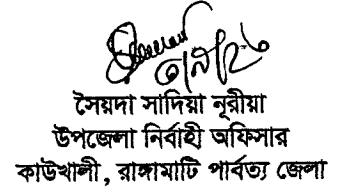 সৈয়দা সাদিয়া নূরীয়া
উপজেলা নির্বাহী অফিসার
কাউখালী, রাঙ্গামাটি পার্বত্য জেলা